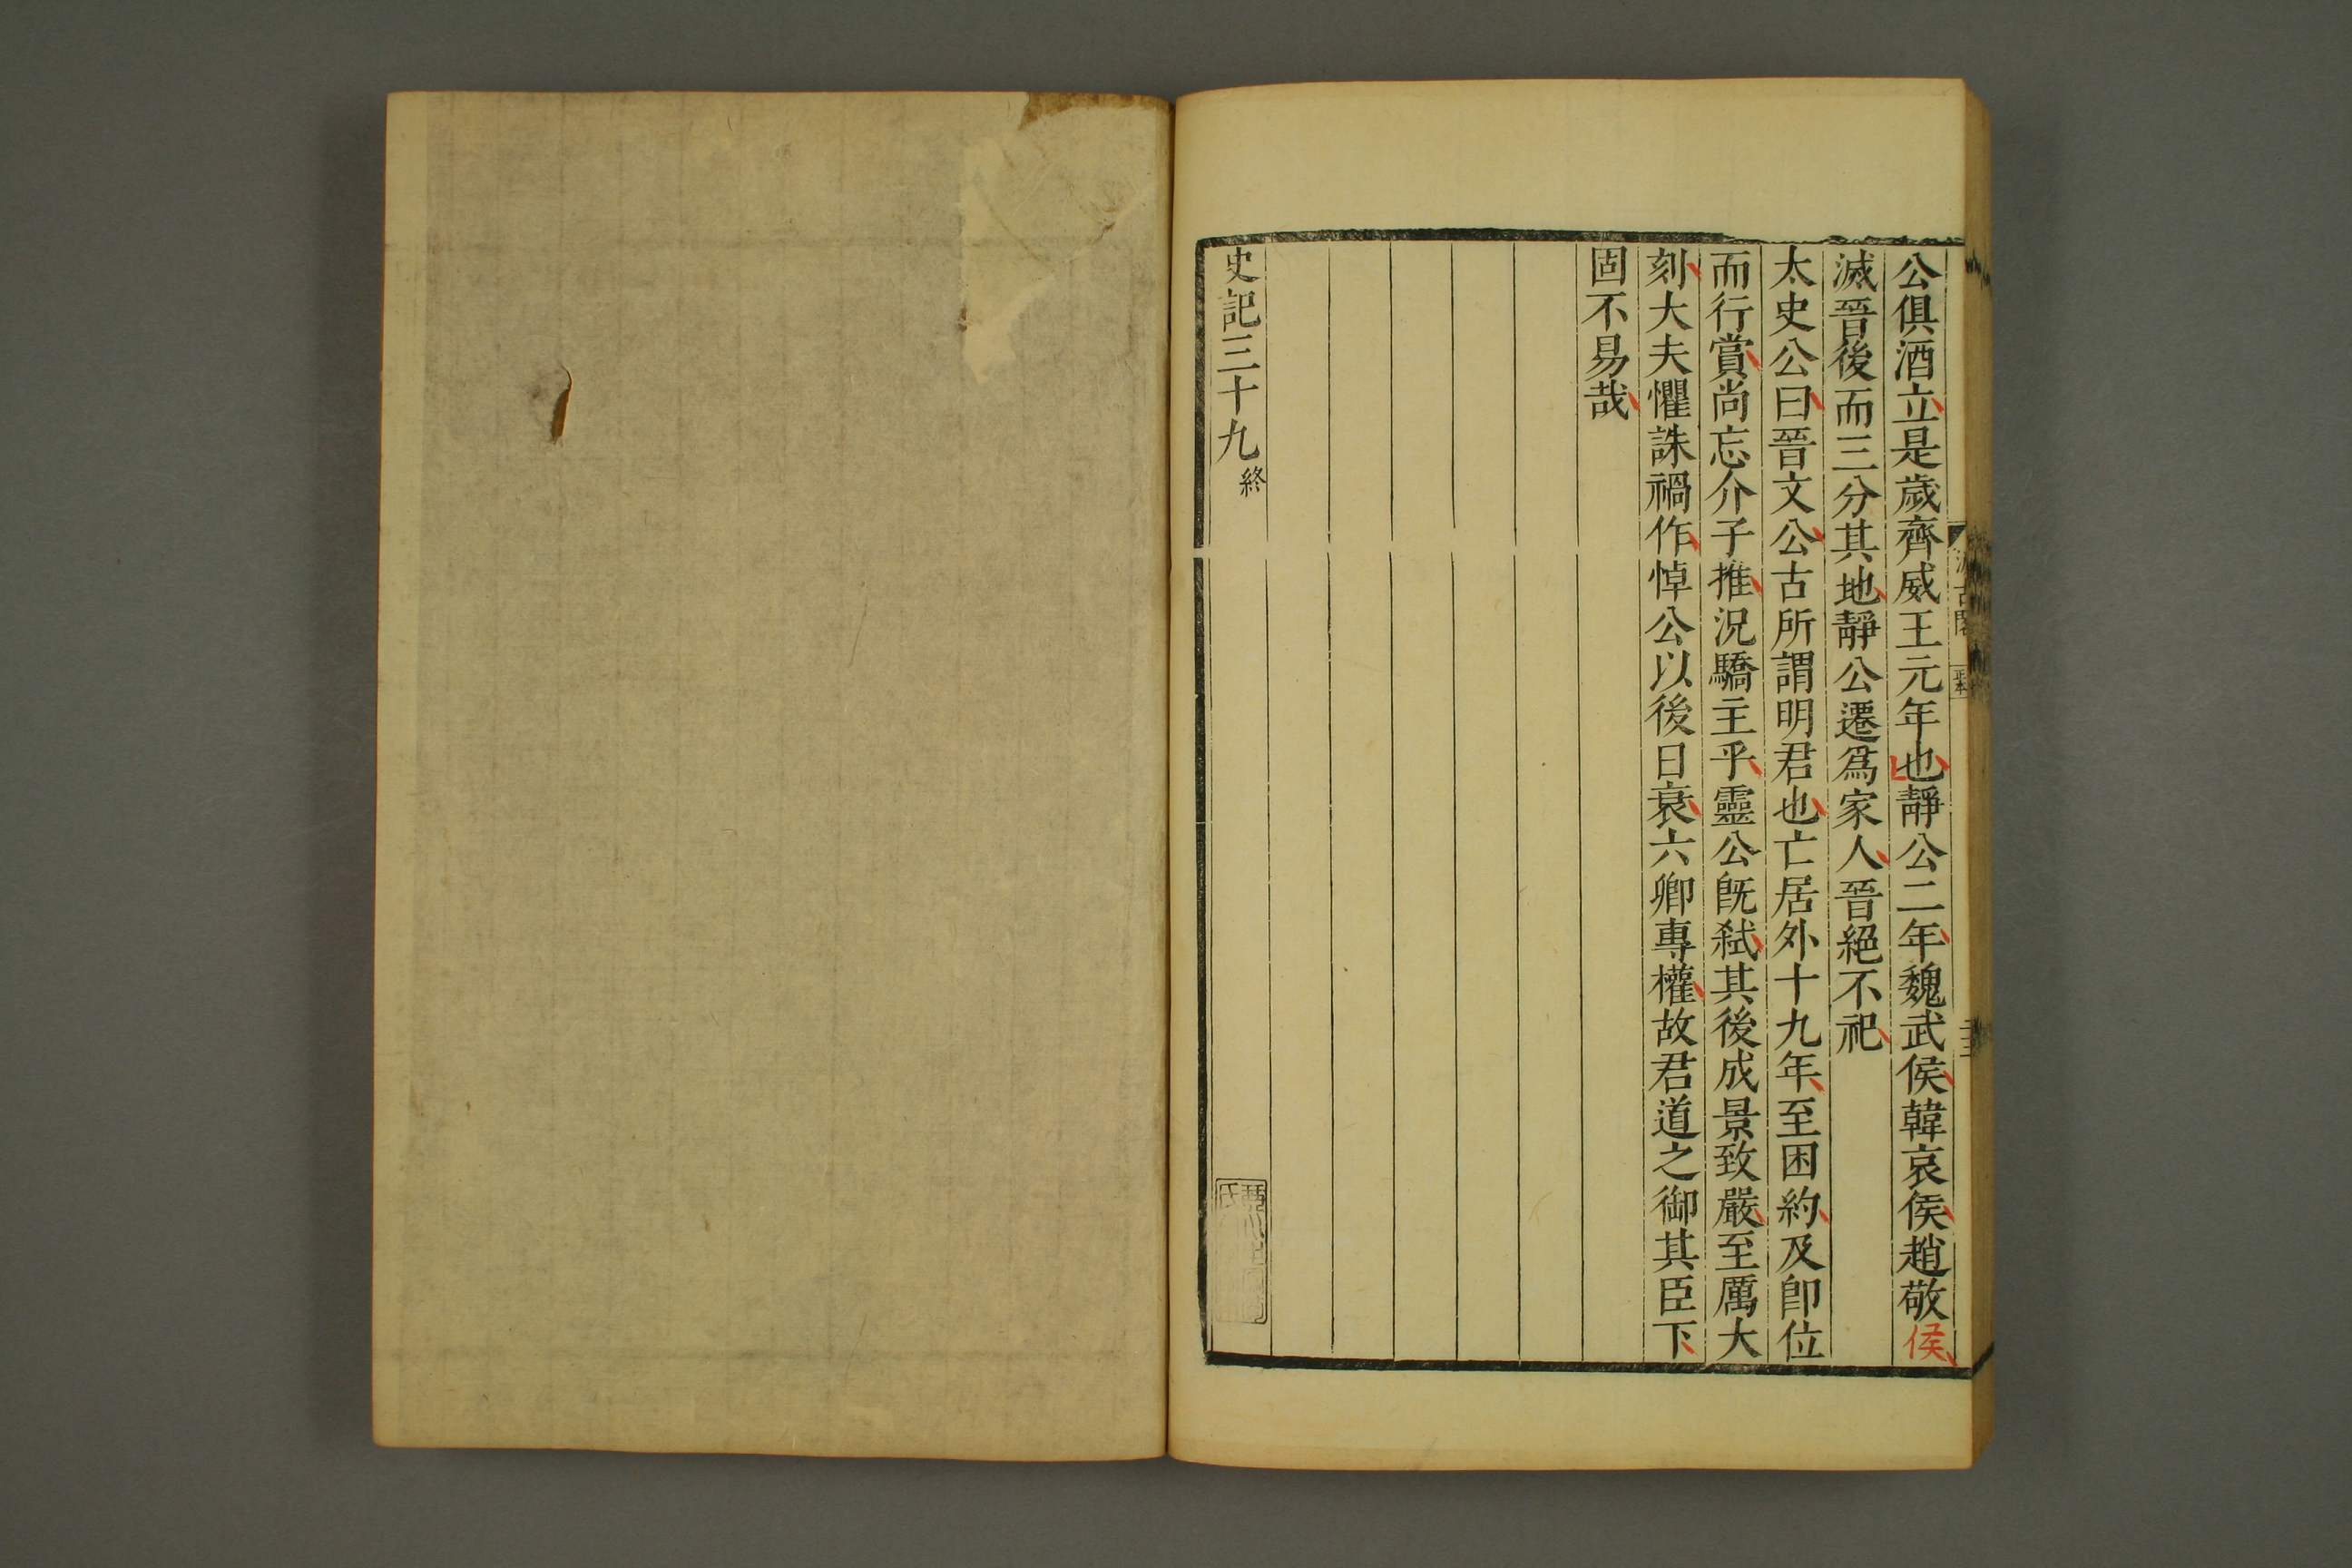 公俱酒立是歲齊威王元年也靜公二年魏武侯韓哀侯趙敬侯
滅晉後而三分其地靜公遷爲家人晉絕不祀
太史公曰晉文公古所謂明君也亡居外十九年至困約及卽位
而行賞尚忘介子推況驕主乎靈公旣弑其後成景致嚴至厲大
刻大夫懼誅禍作悼公以後日衰六卿專權故君道之御其臣下
固不易哉
史記三十九 終